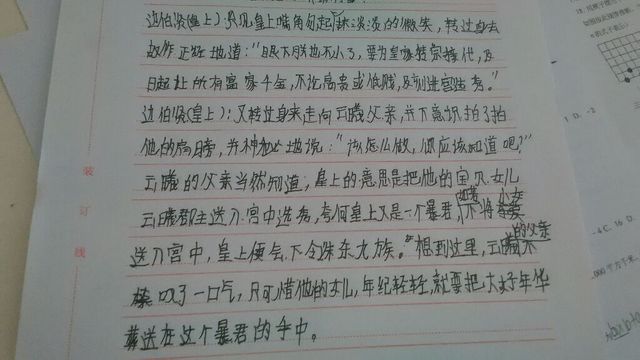 边伯贤(皇上):只见皇上嘴角勾起一抹淡淡的微笑,转过身去
故作正经地道:"眼下朕也不小了,要为皇家传宗接代,即
日起让所有富家千金,不论高贵或低贱,及刻进宫选秀。"
边伯贤(皇上):又转过身来走向云曦父亲,并下意识拍了拍
他的肩膀,并神秘地说:"该怎么做,你应该知道吧?"
云曦的父亲当然知道,皇上的意思是把他的宝贝女儿
云曦郡主送入宫中选秀,奈何皇上又是一个暴君,如若不将小女
送入宫中,皇上便会下令诛杀九族。"想到这里,云曦的父亲
叹了一口气,只可惜他的女儿,年纪轻轻,就要把大好年华
葬送在这个暴君的手中。
装
订
线
1 D. -2
-4 C. 16 D.